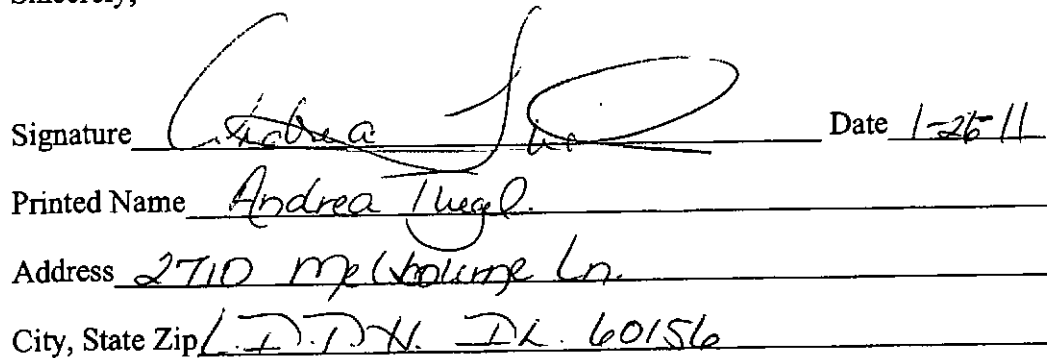 Sincerely,
Signature Andrea Date 1-26-11
Printed Name Andrea
Address 2710 Melbourne Ln.
City, State Zip IL. 60156